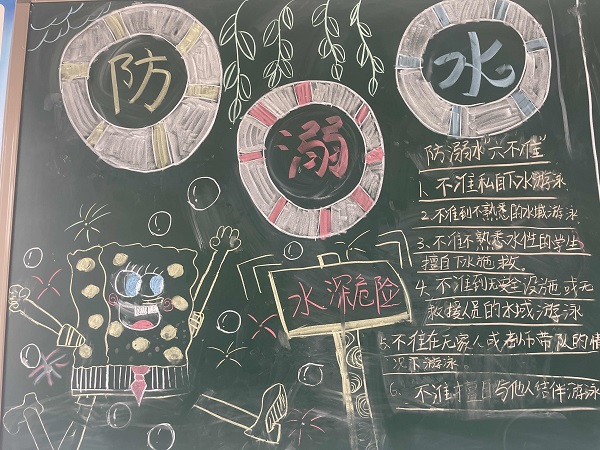 防
溺
水
防溺水"六不准"
1、不准私自下水游泳
2、不准到不熟悉的水域游泳
3、不准不熟悉水性的学生
擅自下水施救。
4、不准到无安全设施或无
救援员的水域游泳
5、不准在无家人或老师带队的情
况下游泳。
6、不准擅自与他人结伴游泳
水深危险